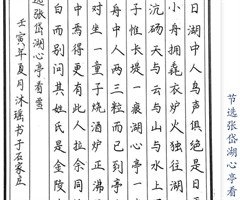 节选张岱湖心亭看
日湖中人鸟声俱绝是日
小舟拥毳衣炉火独往湖
沆砀天与云与山与水上
子惟长堤一痕湖心亭一
舟中人两三粒而已到亭
对坐一童子烧酒炉正沸
中焉得更有此人拉余同
白而别问其姓氏是金陵
选张岱湖心亭看雪
壬寅年夏月沐瑶书于石家庄